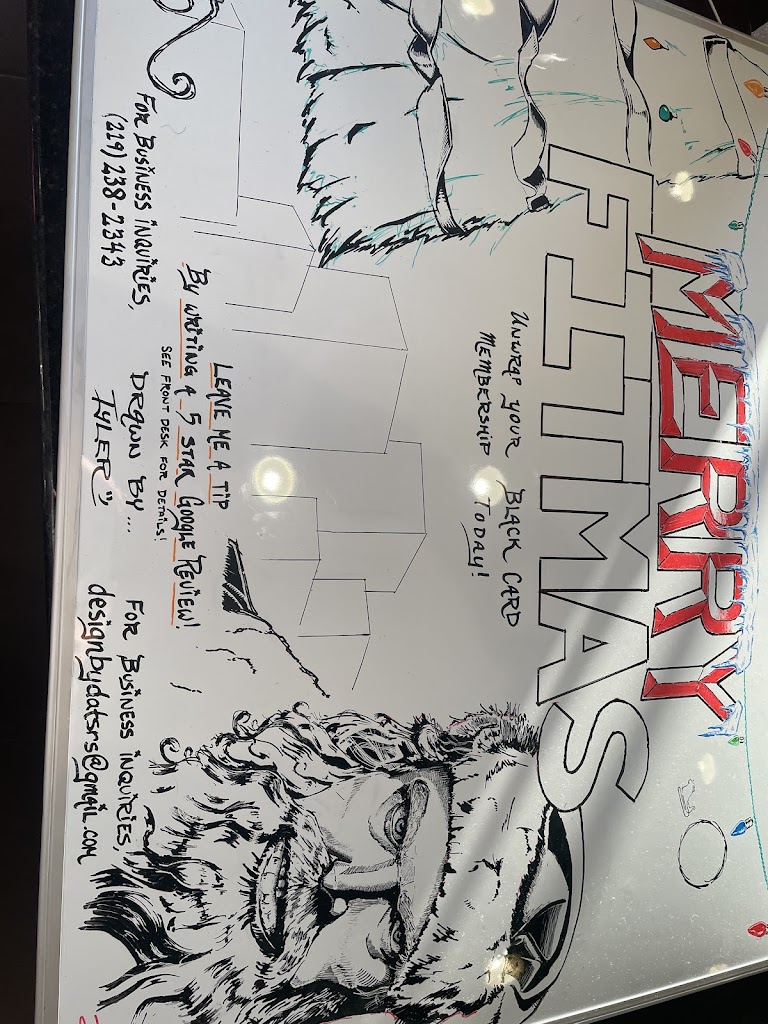 MERRY
FITMAS
UNWRAP YOUR BLACK CARD
MEMBERSHIP TODAY!
LEAVE ME A TIP
By WRITING A 5 STAR GOOGLE REVIEW!
SEE FRONT DESK FOR DETAILS!
FOR BUSINESS INQUIRIES,
(219) 238-2343
DRAWN BY...
TYLER
FOR BUSINESS INQUIRIES,
designbydatsrs@gmail.com